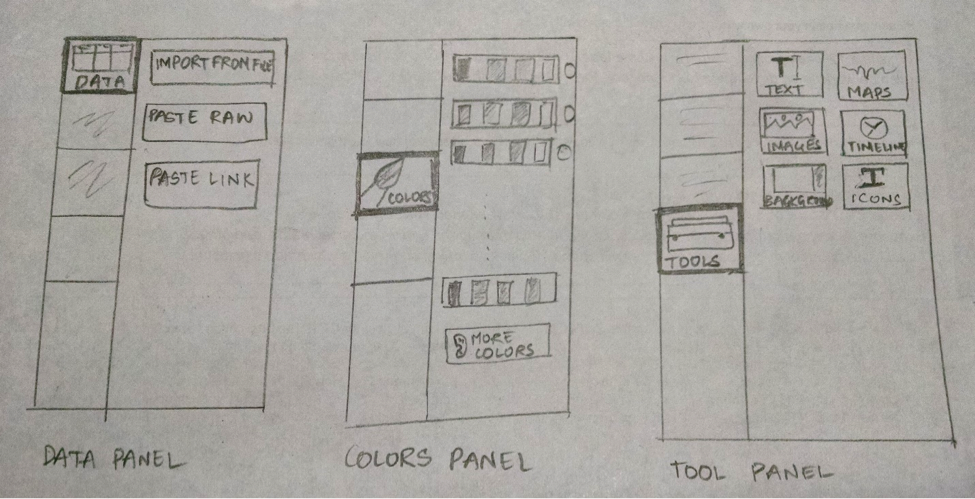 DATA
IMPORT FROM FILE
PASTE RAW
PASTE LINK
DATA PANEL
COLORS
MORE
COLORS
COLORS PANEL
TEXT
MAPS
IMAGES
TIMELINE
ICONS
TOOLS
TOOL PANEL